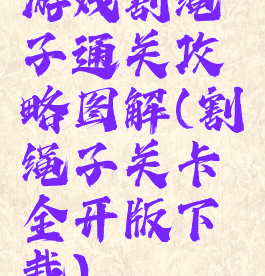 游戏割绳
子通关攻
略图解(割
绳子关卡
全开版下
载)